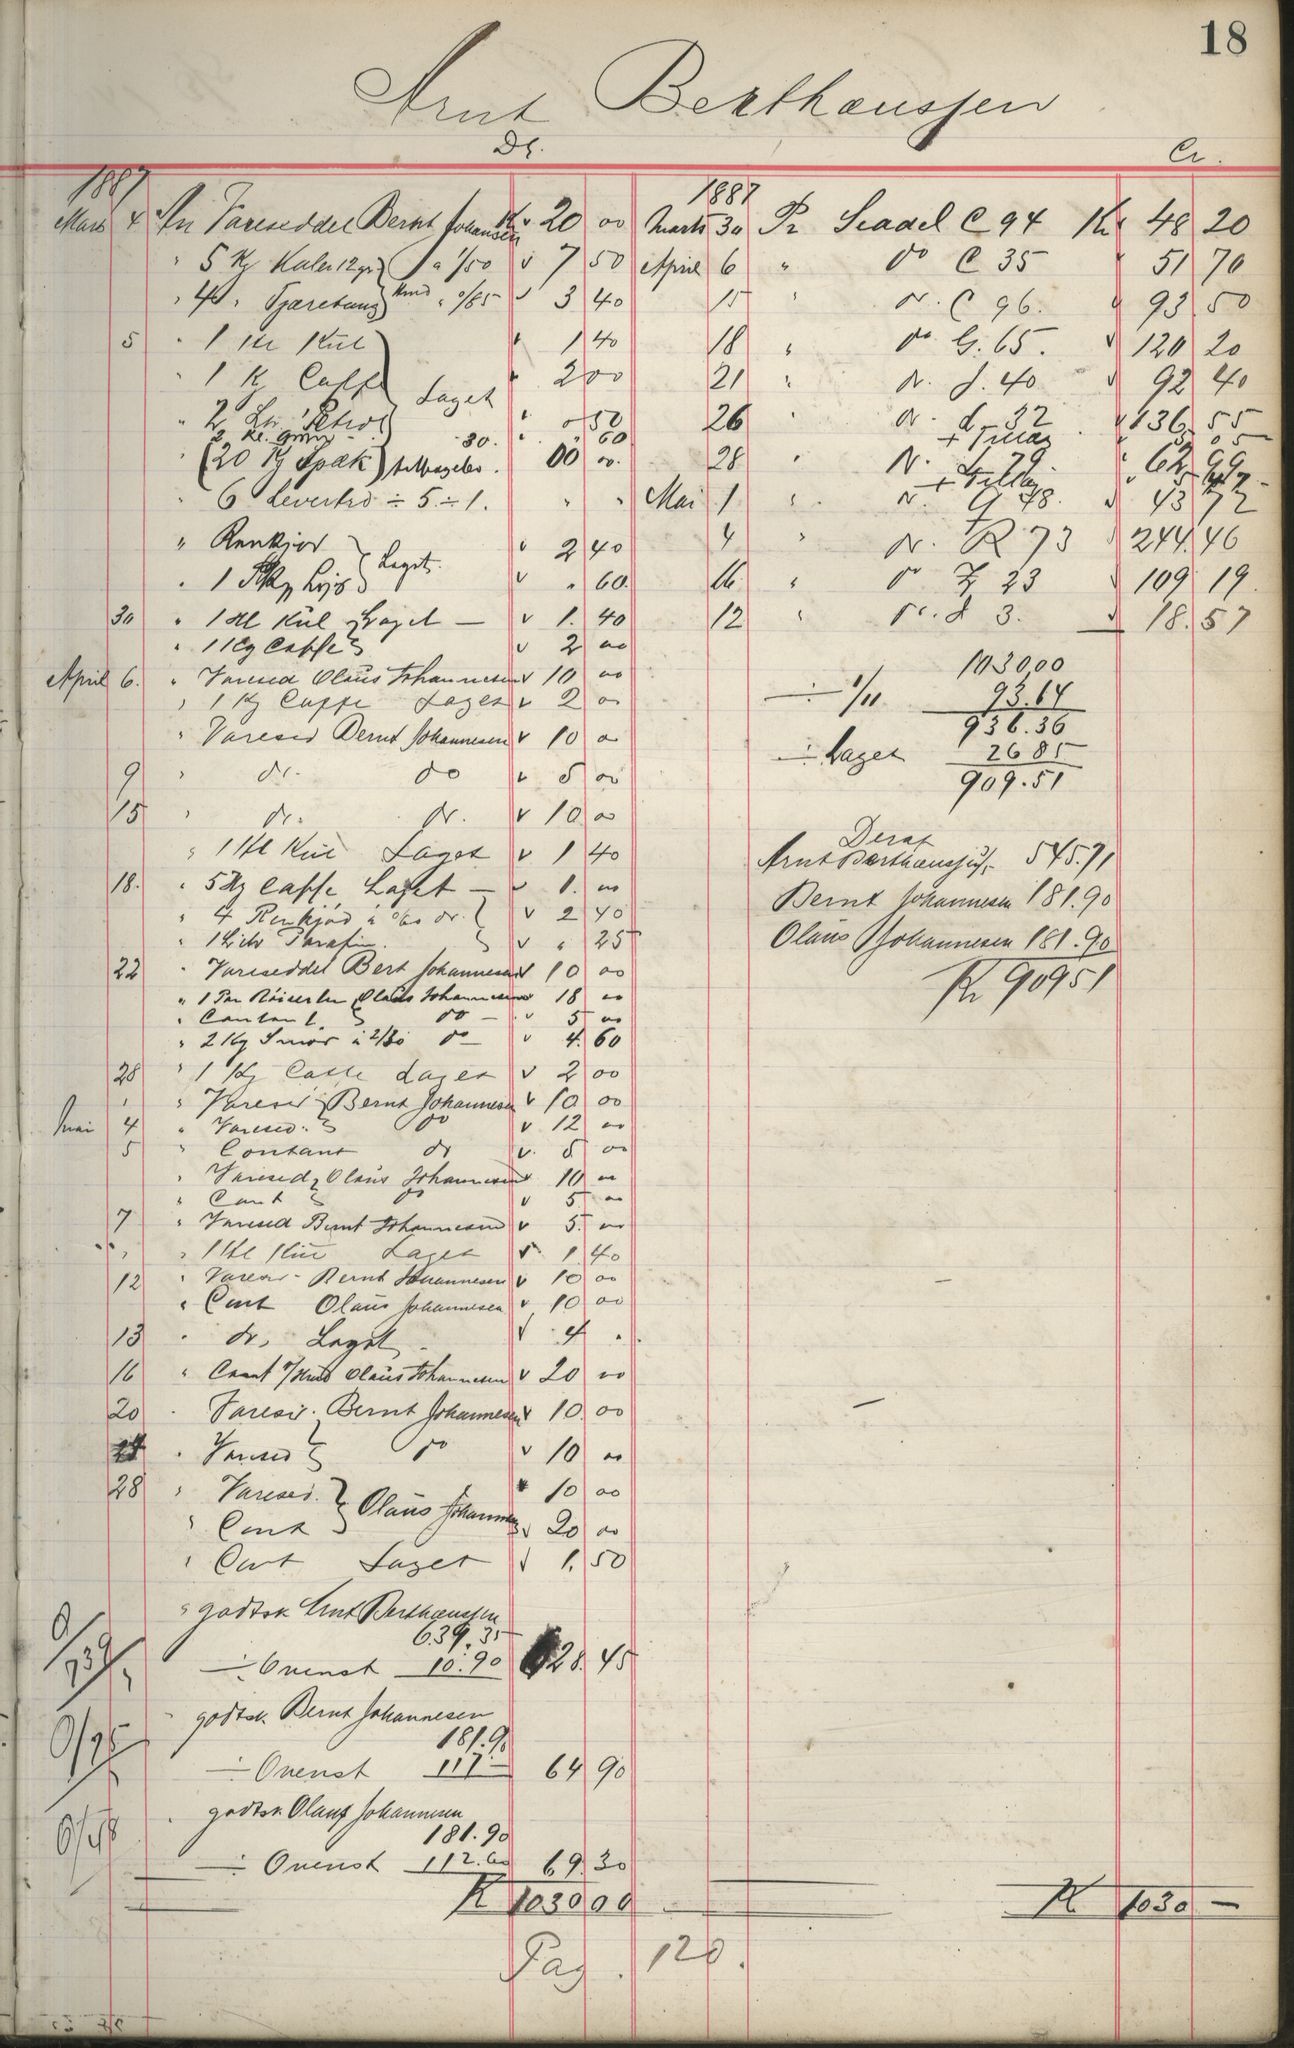 18
Arnt Berthaussen
Dr.
Cr.
1887
Mars 4 An Vareseddel Bernt Johansen Kr 20 00
" 5 Kg Kaler 12 gr " 1/50 7 50
" 4 " Tjæretaug Knud " 0/85 3 40
5 " 1 Hl Kül 1 40
" 1 Kg Caffe Laget 2 00
" 2 Ltr Petrol " 50
2 Kl. Gryn - 30. " 60
" (20 Kg Spæk) 00 00.
" 6 Levertro ÷ 5 ÷ 1. " "
" Renkjød Laget 2 40
" 1 Lyse " 60
30 " 1 Hl Kül Laget — 1. 40
" 1 Kg Caffe 2 00
April 6. " Varesed Olaüs Johannesen 10 00
" 1 Kg Caffe Laget 2 00
" Varesed Bernt Johannesen 10 00
9 " do. do 5 00
15 " do. do. 10 00
" 1 Hl Kül Laget 1 40
18. " 5 Hg Caffe Laget — 1. 00
" 4 Renkjød à 0/60 do. 2 40
" 1 Liter Parafin " 25
22 " Vareseddel Bert Johannesen 10 00
" 1 Par Olaüs Johannesen 18 00
" Contant do — 5 00
" 2 Kg Smør à 2/30 do — 4. 60
28 " 1 Kg Caffe Laget 2 00
" " Varesed Bernt Johannesen 10 00
Mai 4 " Varesed. do 12 00
5 " Contant do 5 00
" Varesed Olaüs Johannesen 10 00
" Cont do 5 00
7 " Varesed Bernt Johannesen 5. 00
" " 1 Hl Kül Laget 1. 40
12 " Varesed. Bernt Johannesen 10 00
" Cont Olaüs Johannesen 10 00
13 " do. Laget 4 "
16 " Cont Olaüs Johannesen 20 00
20 " Varesed. Bernt Johannesen 10 00
" Varesed do 10 00
28 " Varesed. Olaüs Johannesen 10 00
" Cont 20 00
" Cont Laget 1. 50
" godtsk Arnt Berthaussen
639.35
÷ Ovenst 10.90 628. 45
godtsk Bernt Johannesen
181.90
÷ Ovenst 117 — 64 90
godtsk Olaus Johannesen
181.90
÷ Ovenst 112.60 69. 30
Kr 1030 00
Pag. 120.
1887
Marts 30 Pr Seddel C 94 Kr 48 20
April 6 " do C 35 51 70
15 " do. C 96. 93. 50
18 " do G. 65. 120 20
21 " do. J. 40 92 40
26 " do. d. 32 136. 55
+ Tillæg
28 " do. 62. 99
+ Tillæg
Mai 1 " do. 48. 43 72
4 " do. R 73 244. 46
" do Z 23 109 19.
12 " do. d 3. 18. 57
1030,00
÷ 1/11 93.64
936.36
÷ Laget 26 85
909.51
Deraf
Arnt Berthaussen 545.71
Bernt Johannesen 181.90
Olaüs Johannesen 181.90
Kr 909 51
Kr 1030 —